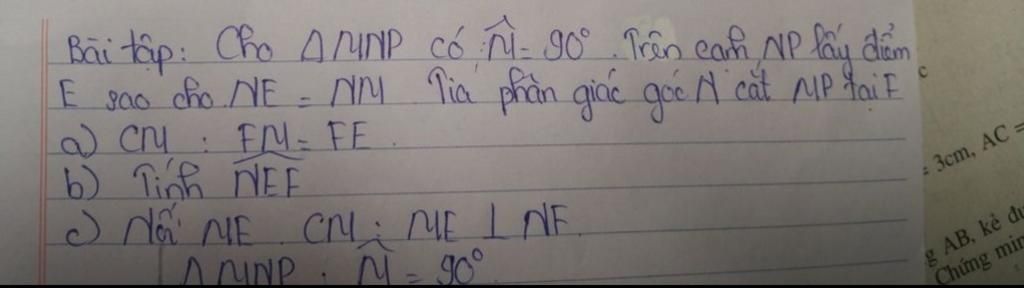 Bài tập: Cho ΔMNP có M̂ = 90°. Trên cạnh NP lấy điểm
E sao cho NE = NM Tia phân giác góc N cắt MP tại F
a) CM : FM = FE.
b) Tính N̂EF
c) Nối ME. CM : ME ⊥ NF.
ΔMNP : M̂ = 90°
c
= 3cm, AC =
g AB, kẻ đư
Chứng min